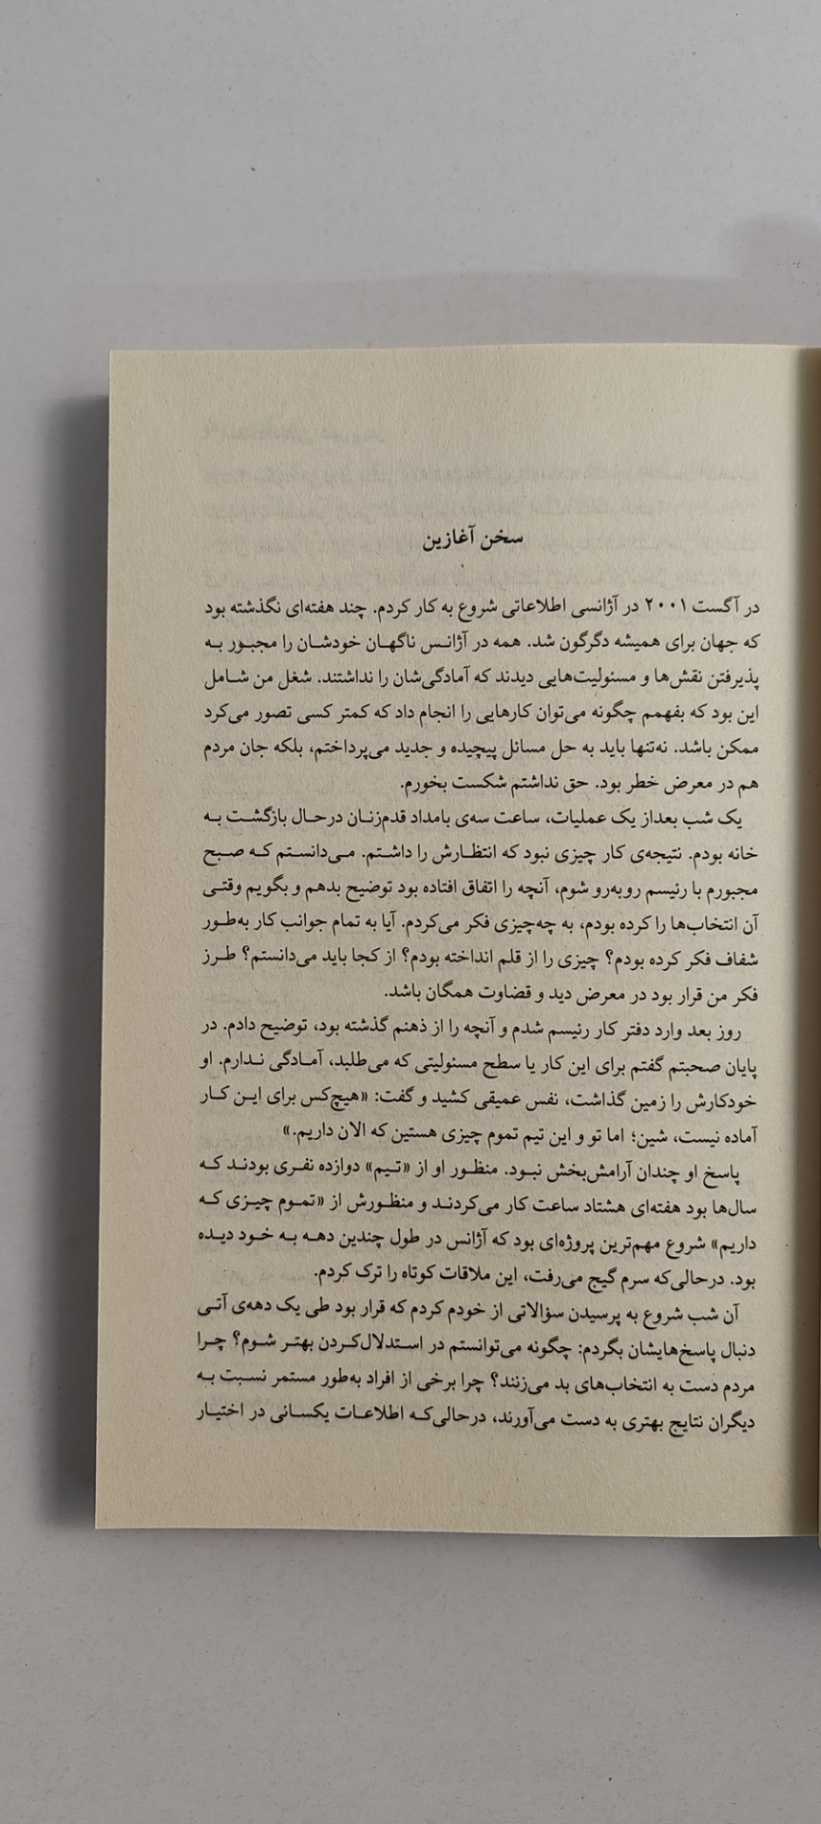 سخن آغازین
در آگست ۲۰۰۱ در آژانسی اطلاعاتی شروع به کار کردم. چند هفته‌ای نگذشته بود
که جهان برای همیشه دگرگون شد. همه در آژانس ناگهان خودشان را مجبور به
پذیرفتن نقش‌ها و مسئولیت‌هایی دیدند که آمادگی‌شان را نداشتند. شغل من شامل
این بود که بفهمم چگونه می‌توان کارهایی را انجام داد که کمتر کسی تصور می‌کرد
ممکن باشد. نه‌تنها باید به حل مسائل پیچیده و جدید می‌پرداختم، بلکه جان مردم
هم در معرض خطر بود. حق نداشتم شکست بخورم.
یک شب بعداز یک عملیات، ساعت سه‌ی بامداد قدم‌زنان درحال بازگشت به
خانه بودم. نتیجه‌ی کار چیزی نبود که انتظارش را داشتم. می‌دانستم که صبح
مجبورم با رئیسم روبه‌رو شوم، آنچه را اتفاق افتاده بود توضیح بدهم و بگویم وقتی
آن انتخاب‌ها را کرده بودم، به چه‌چیزی فکر می‌کردم. آیا به تمام جوانب کار به‌طور
شفاف فکر کرده بودم؟ چیزی را از قلم انداخته بودم؟ از کجا باید می‌دانستم؟ طرز
فکر من قرار بود در معرض دید و قضاوت همگان باشد.
روز بعد وارد دفتر کار رئیسم شدم و آنچه را از ذهنم گذشته بود، توضیح دادم. در
پایان صحبتم گفتم برای این کار یا سطح مسئولیتی که می‌طلبد، آمادگی ندارم. او
خودکارش را زمین گذاشت، نفس عمیقی کشید و گفت: «هیچ‌کس برای این کار
آماده نیست، شین؛ اما تو و این تیم تموم چیزی هستین که الان داریم.»
پاسخ او چندان آرامش‌بخش نبود. منظور او از «تیم» دوازده نفری بودند که
سال‌ها بود هفته‌ای هشتاد ساعت کار می‌کردند و منظورش از «تموم چیزی که
داریم» شروع مهم‌ترین پروژه‌ای بود که آژانس در طول چندین دهه به خود دیده
بود. درحالی‌که سرم گیج می‌رفت، این ملاقات کوتاه را ترک کردم.
آن شب شروع به پرسیدن سؤالاتی از خودم کردم که قرار بود طی یک دهه‌ی آتی
دنبال پاسخ‌هایشان بگردم: چگونه می‌توانستم در استدلال‌کردن بهتر شوم؟ چرا
مردم دست به انتخاب‌های بد می‌زنند؟ چرا برخی از افراد به‌طور مستمر نسبت به
دیگران نتایج بهتری به دست می‌آورند، درحالی‌که اطلاعات یکسانی در اختیار